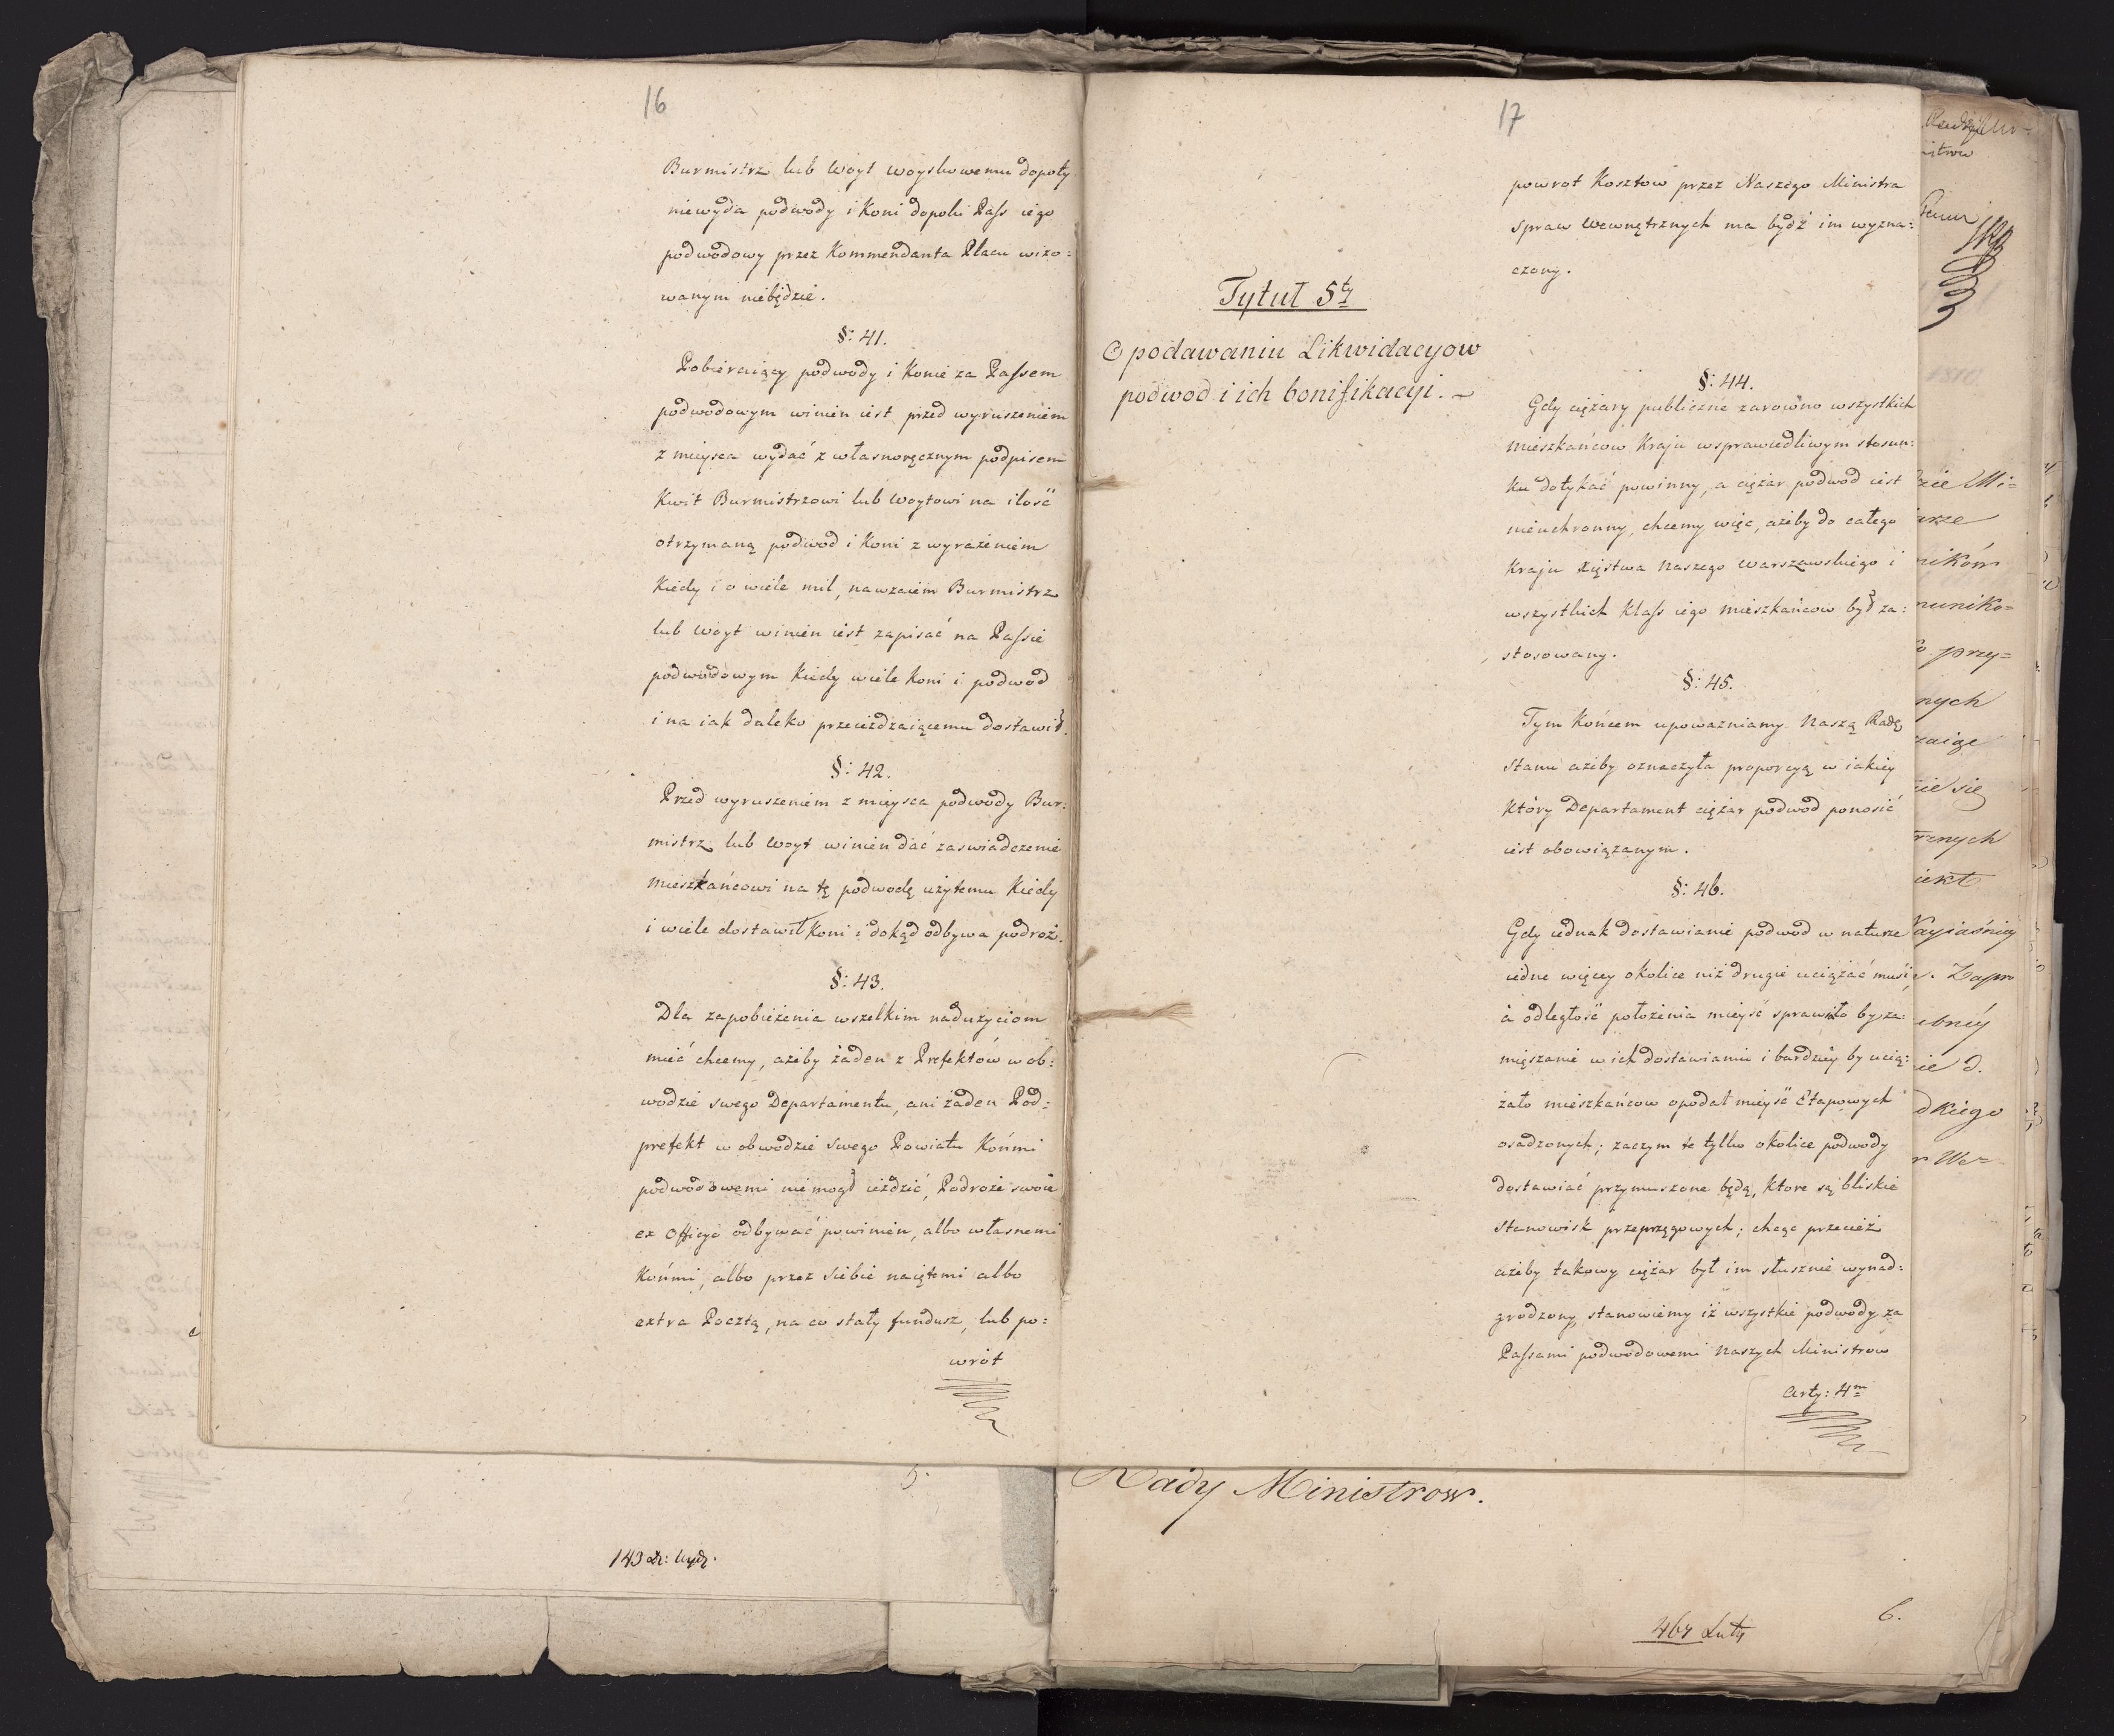 16
Burmistrz lub Woyt woyskowemu dopoty
niewyda podwody i Koni dopoki Pass iego
podwodowy przez Kommendanta Placu wizo:
wanym niebędzie.
§: 41.
Pobieraiący podwody i Konie za Passem
podwodowym winien iest przed wyruszeniem
z mieysca wydać z własnoręcznym podpisem
Kwit Burmistrzowi lub Woytowi na ilość
otrzymaną podwod i Koni z wyrażeniem
Kiedy i o wiele mil, nawzaiem Burmistrz
lub Woyt winien iest zapisać na Passie
podwodowym Kiedy wiele Koni i podwod
i na iak daleko przeieżdzaiącemu dostawił.
§: 42.
Przed wyruszeniem z mieysca podwody Bur:
mistrz lub Woyt winien dać zaswiadczenie
mieszkańcowi na tę podwodę użytemu Kiedy
i wiele dostawił Koni i dokąd odbywa podroż.
§: 43.
Dla zapobieżenia wszelkim nadużyciom
mieć chcemy, ażeby żaden z Prefektów w ob:
wodzie swego Departamentu, ani żaden Pod:
prefekt w obwodzie swego Powiatu Końmi
podwodowemi niemogł ieździć, Podroże swoie
ex Officyo odbywać powinien, albo własnemi
Końmi, albo przez siebie naiętemi albo
extra Pocztą, na co stały fundusz, lub po:
wrot
143
17
powrot Kosztow przez Naszego Ministra
spraw Wewnętrznych ma bydź im wyzna:
czony.
Tytuł 5ty
O podawaniu Likwidacyow
podwod i ich bonifikacyi.
§: 44.
Gdy ciężary publiczne zarowno wszystkich
mieszkańcow Kraju wsprawiedliwym stosun:
ku dotykać powinny, a ciężar podwod iest
nieuchronny, chcemy więc, ażeby do całego
Kraju Xięstwa Naszego Warszawskiego i
wszystkich Klass iego mieszkańcow był za:
stosowany.
§: 45.
Tym Końcem upoważniamy Naszą Radę
Stanu ażeby oznaczyła proporcyą w iakiey
Który Departament ciężar podwod ponosić
iest obowiązanym.
§: 46.
Gdy iednak dostawianie podwod w naturze
iedne więcey okolice niż drugie uciążać musi,
a odległość położenia mieysc sprawiło by za:
mięszanie w ich dostawianiu i bardziey by ucią:
żało mieszkańcow opodal mieysc Etapowych
osadzonych; zaczym te tylko okolice podwody
dostawiać przymuszone będą, Ktore są bliskie
Stanowisk przeprzęgowych; chcąc przecież
ażeby takowy ciężar był im słusznie wynad:
grodzony, stanowiemy iż wszystkie podwody za
Passami podwodowemi Naszych Ministrow
Arty: 4m
Rady Ministrow.
6.